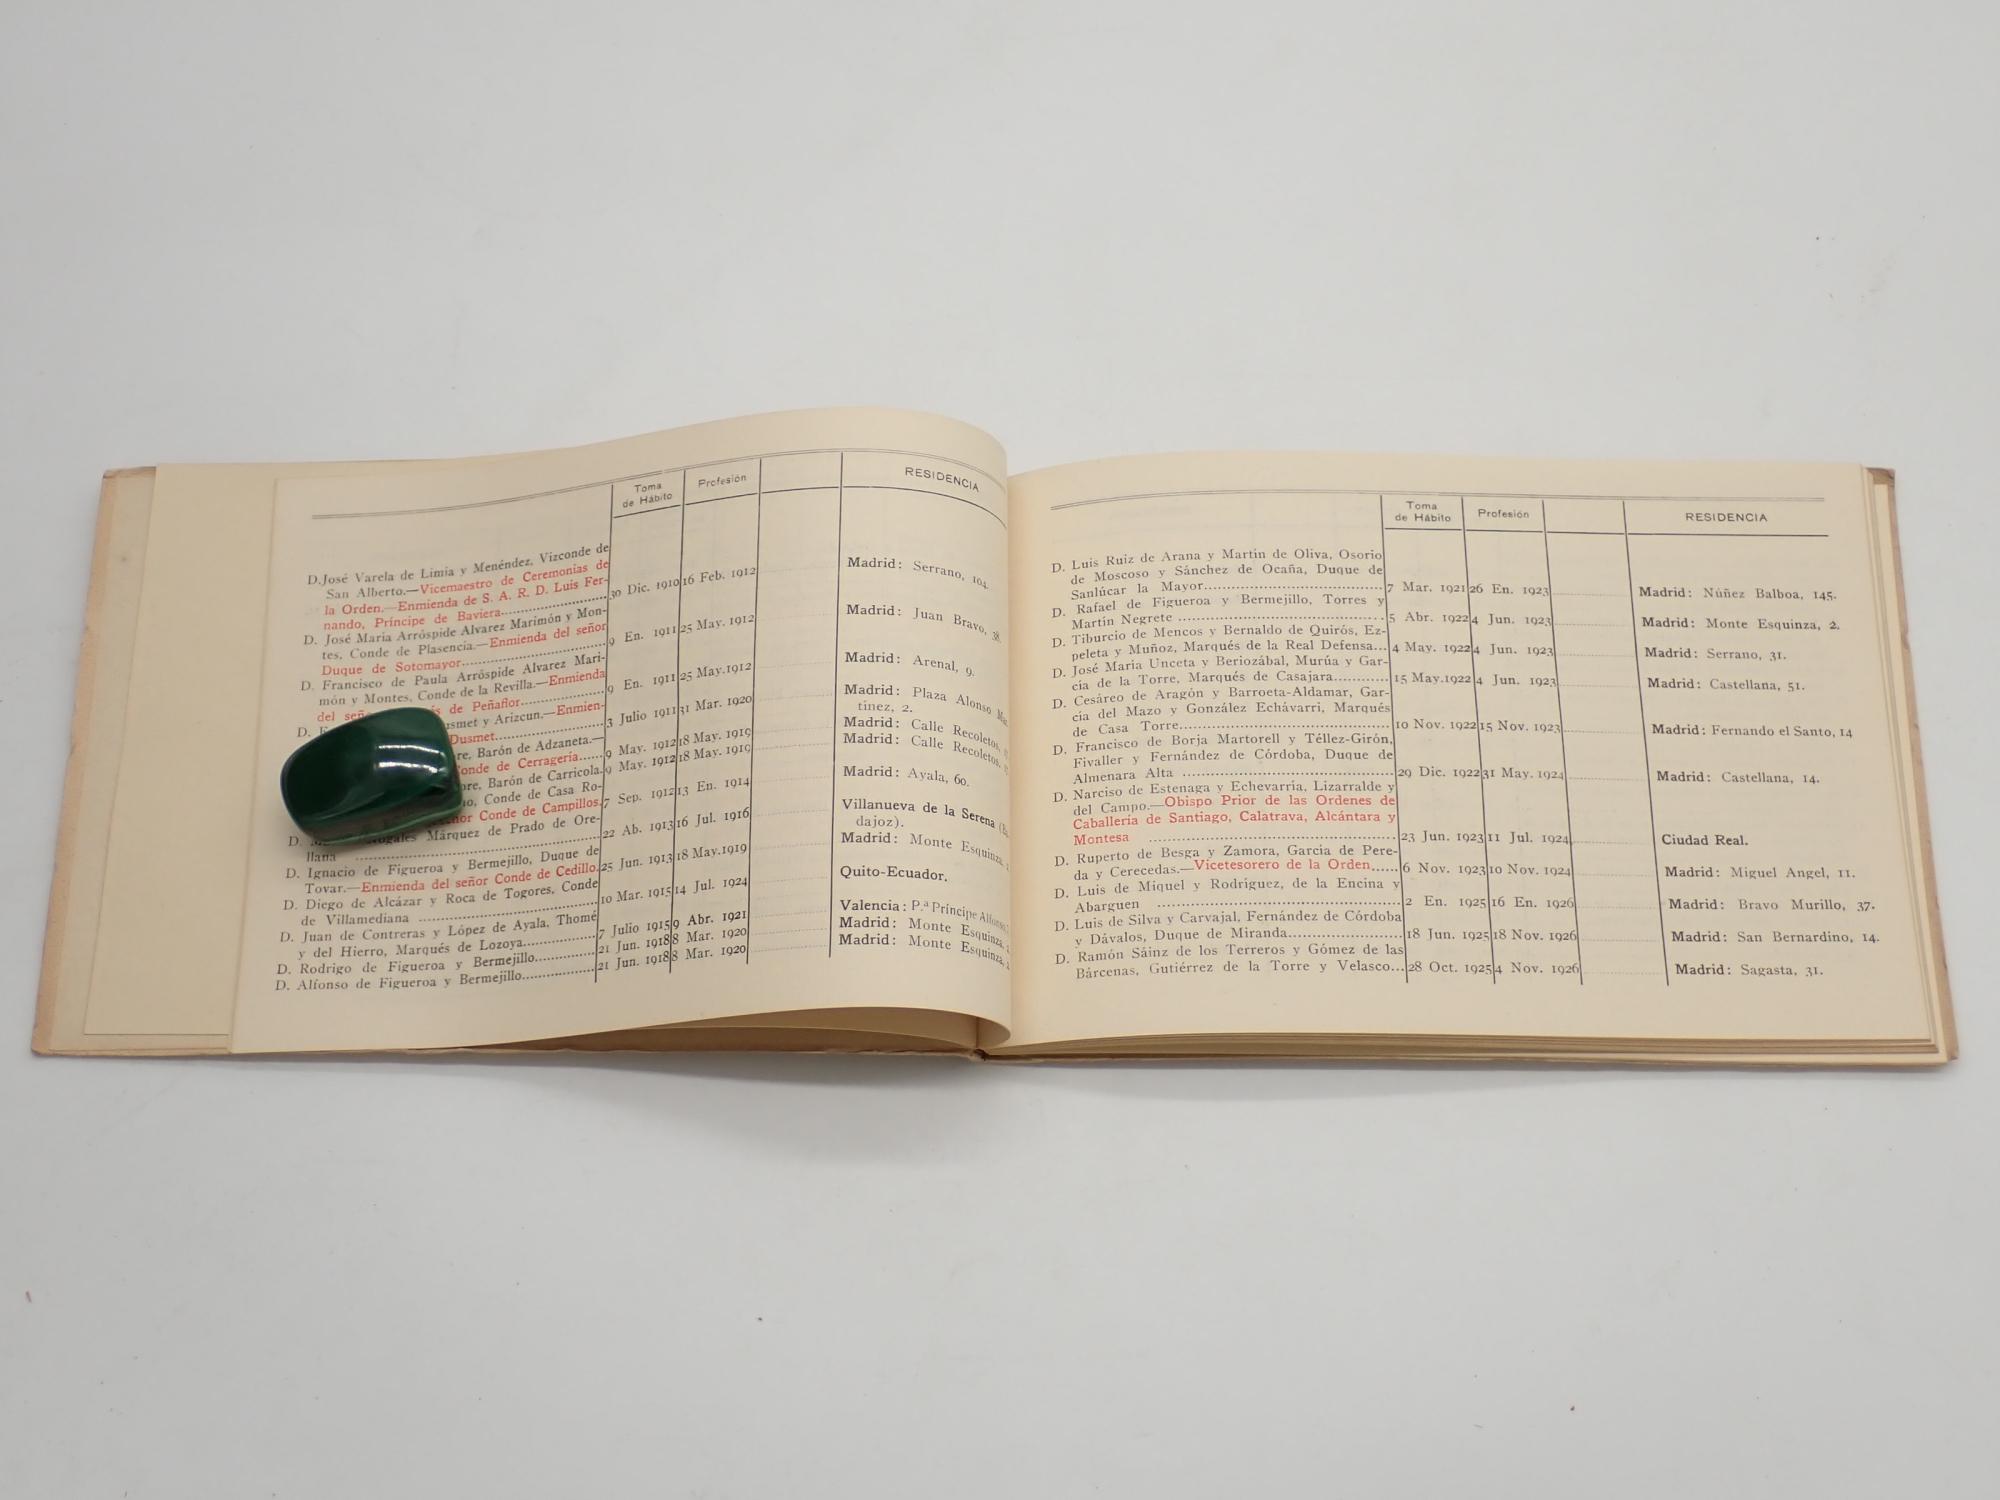 Toma
de Hábito
Profesión
RESIDENCIA
D. José Varela de Limia y Menéndez, Vizconde de
San Alberto.—Vicemaestro de Ceremonias de
la Orden.—Enmienda de S. A. R. D. Luis Fer-
nando, Príncipe de Baviera 30 Dic. 1910 16 Feb. 1912 Madrid: Serrano, 104.
D. José María Arróspide Alvarez Marimón y Mon-
tes, Conde de Plasencia.—Enmienda del señor
Duque de Sotomayor 9 En. 1911 25 May. 1912 Madrid: Juan Bravo, 38.
D. Francisco de Paula Arróspide Alvarez Mari-
món y Montes, Conde de la Revilla.—Enmienda
del de Peñaflor 9 En. 1911 25 May. 1912 Madrid: Arenal, 9.
D. y Arizcun.—Enmien-
Dusmet 3 Julio 1911 31 Mar. 1920 Madrid: Plaza Alonso
tínez, 2.
Barón de Adzaneta.—
Conde de Cerragería 9 May. 1912 18 May. 1919 Madrid: Calle Recoletos,
Barón de Carricola. 9 May. 1912 18 May. 1919 Madrid: Calle Recoletos,
Conde de Casa Ro-
Conde de Campillos. 7 Sep. 1912 13 En. 1914 Madrid: Ayala, 60.
D. Nogales Márquez de Prado de Ore-
llana 22 Ab. 1913 16 Jul. 1916 Villanueva de la Serena
dajoz).
D. Ignacio de Figueroa y Bermejillo, Duque de
Tovar.—Enmienda del señor Conde de Cedillo. 25 Jun. 1913 18 May. 1919 Madrid: Monte Esquinza,
D. Diego de Alcázar y Roca de Togores, Conde
de Villamediana 10 Mar. 1915 14 Jul. 1924 Quito-Ecuador.
D. Juan de Contreras y López de Ayala, Thomé
y del Hierro, Marqués de Lozoya 7 Julio 1915 9 Abr. 1921 Valencia: P.ª Príncipe Alfonso,
D. Rodrigo de Figueroa y Bermejillo 21 Jun. 1918 8 Mar. 1920 Madrid: Monte Esquinza,
D. Alfonso de Figueroa y Bermejillo 21 Jun. 1918 8 Mar. 1920 Madrid: Monte Esquinza,
Toma
de Hábito
Profesión
RESIDENCIA
D. Luis Ruiz de Arana y Martín de Oliva, Osorio
de Moscoso y Sánchez de Ocaña, Duque de
Sanlúcar la Mayor 7 Mar. 1921 26 En. 1923 Madrid: Núñez Balboa, 145.
D. Rafael de Figueroa y Bermejillo, Torres y
Martín Negrete 5 Abr. 1922 4 Jun. 1923 Madrid: Monte Esquinza, 2.
D. Tiburcio de Mencos y Bernaldo de Quirós, Ez-
peleta y Muñoz, Marqués de la Real Defensa 4 May. 1922 4 Jun. 1923 Madrid: Serrano, 31.
D. José María Unceta y Beriozábal, Murúa y Gar-
cía de la Torre, Marqués de Casajara 15 May. 1922 4 Jun. 1923 Madrid: Castellana, 51.
D. Cesáreo de Aragón y Barroeta-Aldamar, Gar-
cía del Mazo y González Echávarri, Marqués
de Casa Torre 10 Nov. 1922 15 Nov. 1923 Madrid: Fernando el Santo, 14
D. Francisco de Borja Martorell y Téllez-Girón,
Fivaller y Fernández de Córdoba, Duque de
Almenara Alta 29 Dic. 1922 31 May. 1924 Madrid: Castellana, 14.
D. Narciso de Estenaga y Echevarría, Lizarralde y
del Campo.—Obispo Prior de las Ordenes de
Caballería de Santiago, Calatrava, Alcántara y
Montesa 23 Jun. 1923 11 Jul. 1924 Ciudad Real.
D. Ruperto de Besga y Zamora, García de Pere-
da y Cerecedas.—Vicetesorero de la Orden 6 Nov. 1923 10 Nov. 1924 Madrid: Miguel Angel, 11.
D. Luis de Miquel y Rodríguez, de la Encina y
Abarguen 2 En. 1925 16 En. 1926 Madrid: Bravo Murillo, 37.
D. Luis de Silva y Carvajal, Fernández de Córdoba
y Dávalos, Duque de Miranda 18 Jun. 1925 18 Nov. 1926 Madrid: San Bernardino, 14.
D. Ramón Sáinz de los Terreros y Gómez de las
Bárcenas, Gutiérrez de la Torre y Velasco 28 Oct. 1925 4 Nov. 1926 Madrid: Sagasta, 31.